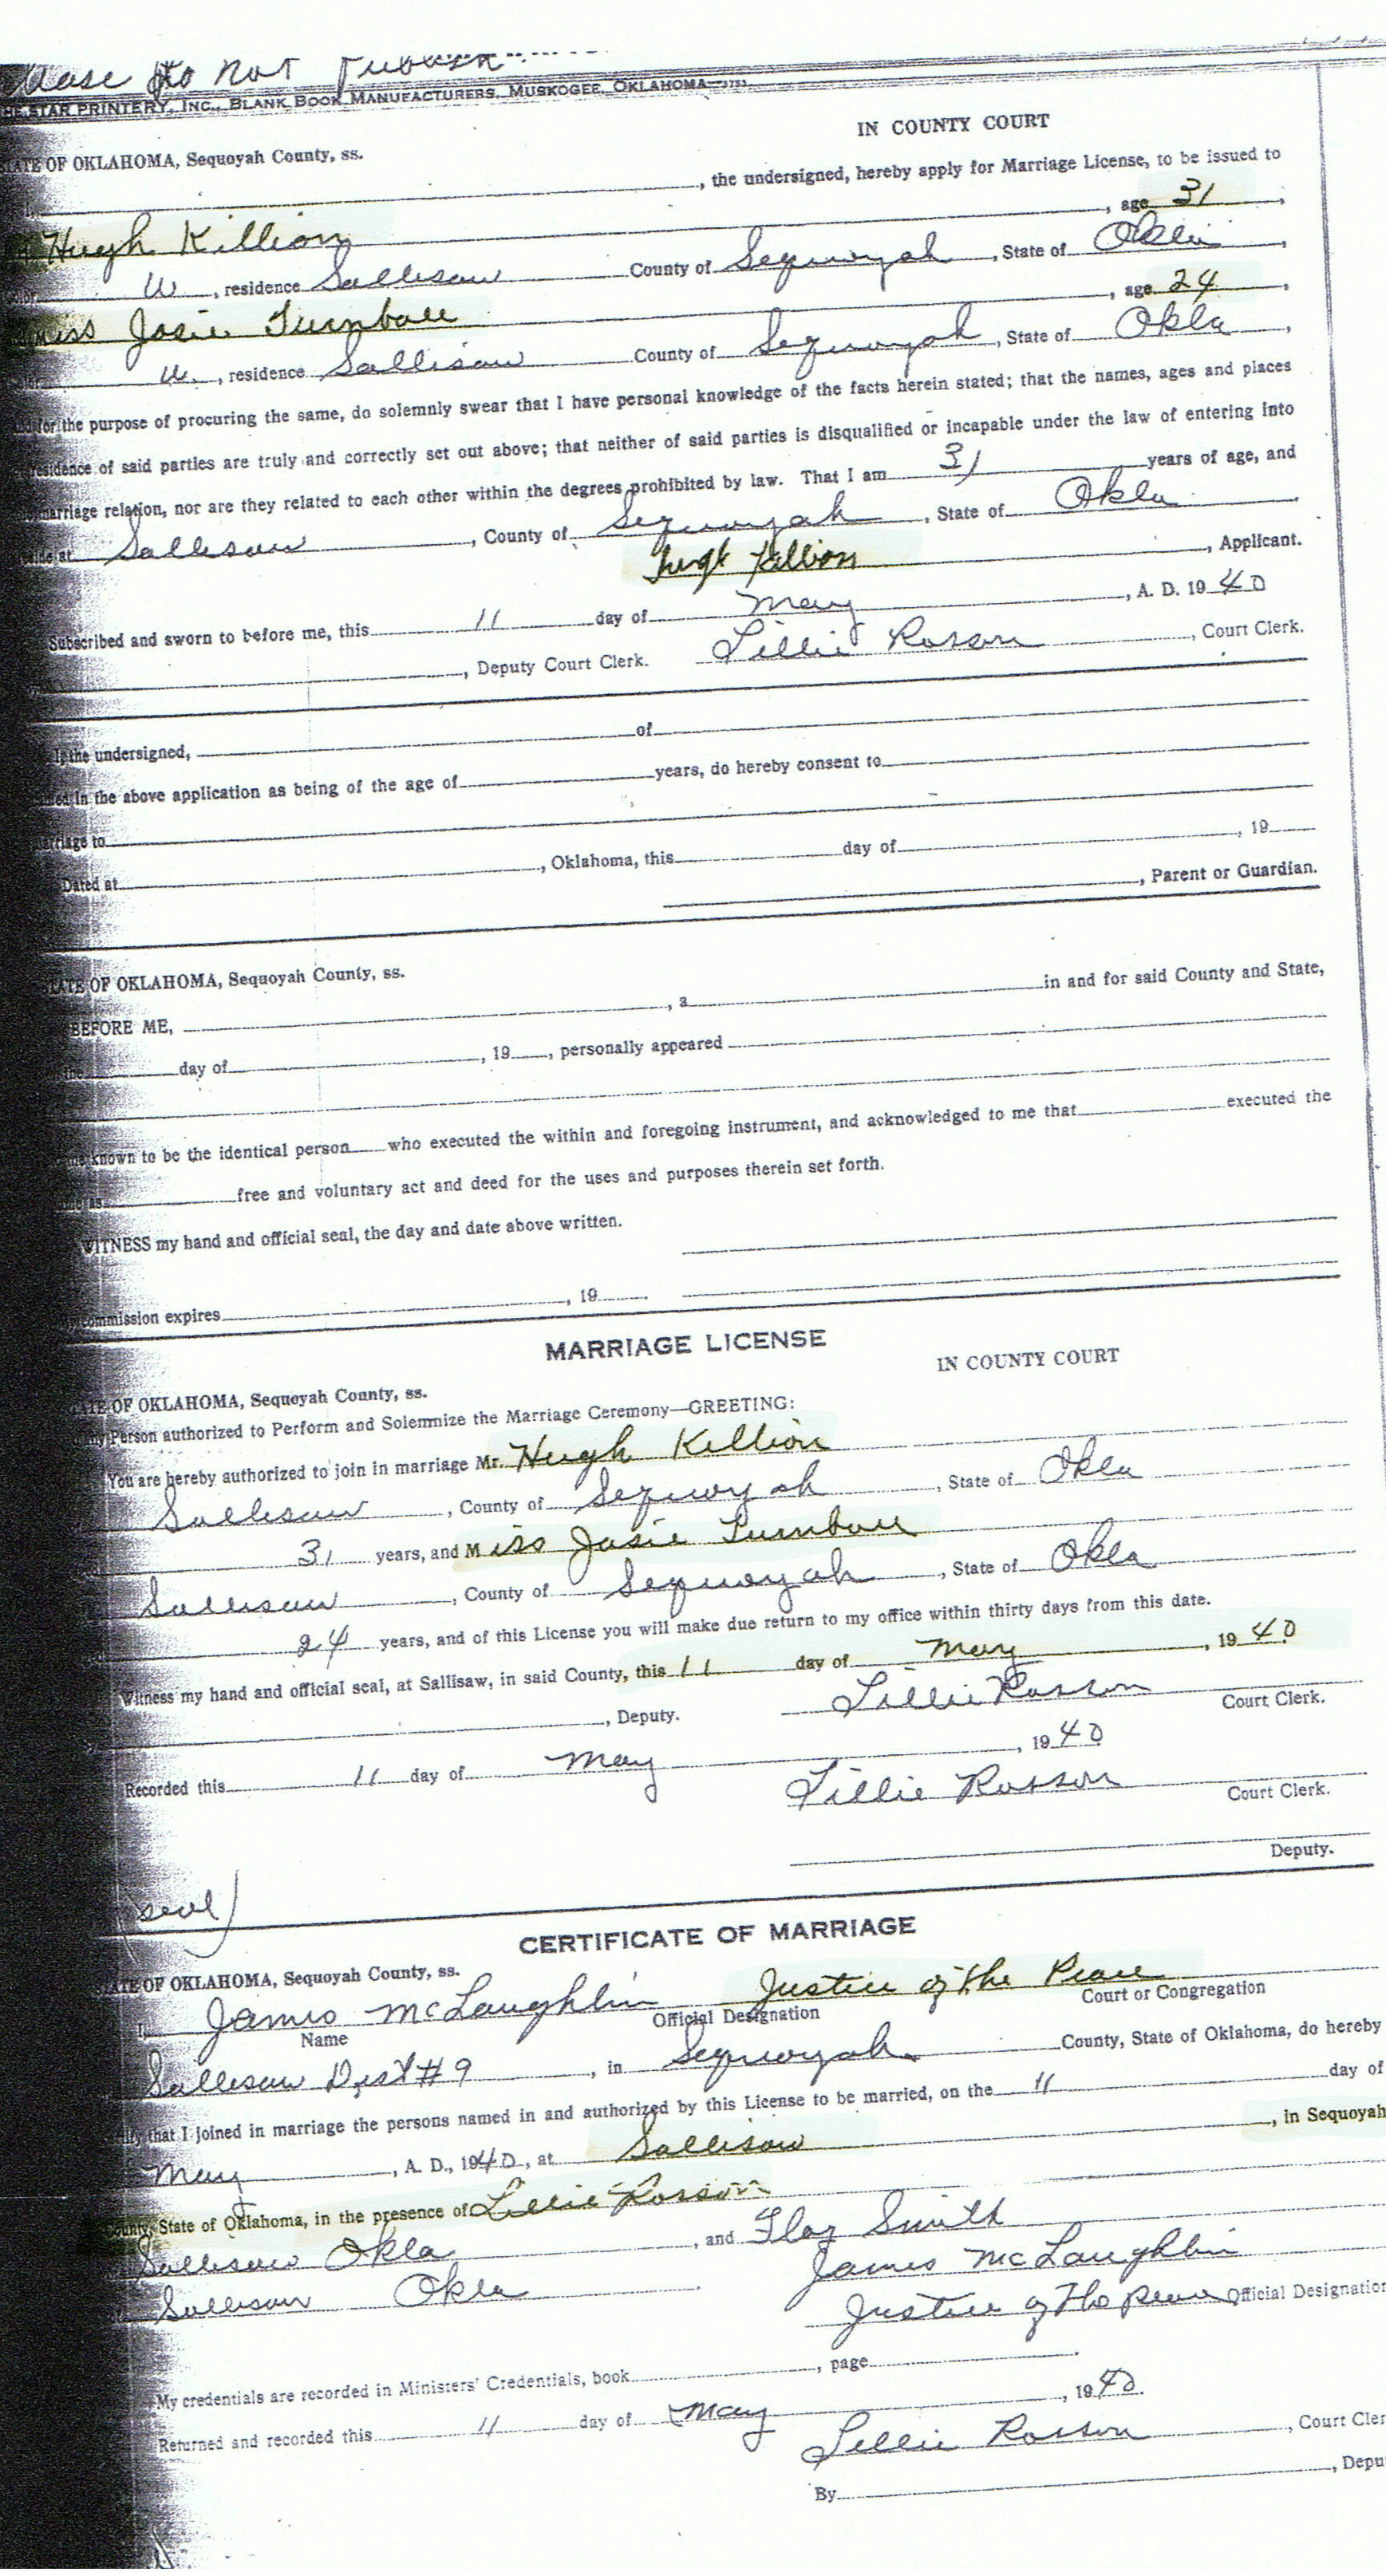 Please do not publish
THE STAR PRINTERY, INC., BLANK BOOK MANUFACTURERS, MUSKOGEE, OKLAHOMA
IN COUNTY COURT
STATE OF OKLAHOMA, Sequoyah County, ss.
I, , the undersigned, hereby apply for Marriage License, to be issued to
Hugh Killion , age 31 ,
Color W , residence Sallisaw County of Sequoyah , State of Okla ,
Miss Josie Turnbull , age 24 ,
Color W. , residence Sallisaw County of Sequoyah , State of Okla ,
and for the purpose of procuring the same, do solemnly swear that I have personal knowledge of the facts herein stated; that the names, ages and places
residence of said parties are truly and correctly set out above; that neither of said parties is disqualified or incapable under the law of entering into
marriage relation, nor are they related to each other within the degrees prohibited by law. That I am 31 years of age, and
reside at Sallisaw , County of Sequoyah , State of Okla .
Hugh Killion , Applicant.
Subscribed and sworn to before me, this 11 day of May , A. D. 19 40
, Deputy Court Clerk. Lillie Rosson , Court Clerk.
I, the undersigned, of
named in the above application as being of the age of years, do hereby consent to
marriage to
Dated at , Oklahoma, this day of , 19
, Parent or Guardian.
STATE OF OKLAHOMA, Sequoyah County, ss.
BEFORE ME, , a in and for said County and State,
the day of , 19 , personally appeared
me known to be the identical person who executed the within and foregoing instrument, and acknowledged to me that executed the
same as free and voluntary act and deed for the uses and purposes therein set forth.
WITNESS my hand and official seal, the day and date above written.
My commission expires , 19
MARRIAGE LICENSE
IN COUNTY COURT
STATE OF OKLAHOMA, Sequoyah County, ss.
any Person authorized to Perform and Solemnize the Marriage Ceremony—GREETING:
You are hereby authorized to join in marriage Mr. Hugh Killion
Sallisaw , County of Sequoyah , State of Okla
31 years, and Miss Josie Turnbull
Sallisaw , County of Sequoyah , State of Okla
24 years, and of this License you will make due return to my office within thirty days from this date.
Witness my hand and official seal, at Sallisaw, in said County, this 11 day of May , 19 40
, Deputy. Lillie Rosson Court Clerk.
Recorded this 11 day of May , 19 40
Lillie Rosson Court Clerk.
Deputy.
(seal)
CERTIFICATE OF MARRIAGE
STATE OF OKLAHOMA, Sequoyah County, ss.
I, James McLaughlin Justice of the Peace
Name Official Designation Court or Congregation
Sallisaw Dist #9 , in Sequoyah County, State of Oklahoma, do hereby
certify that I joined in marriage the persons named in and authorized by this License to be married, on the 11 day of
May , A. D., 1940 , at Sallisaw , in Sequoyah
County, State of Oklahoma, in the presence of Lillie Rosson
Sallisaw Okla , and Floy Smith
Sallisaw Okla James McLaughlin
Justice of the Peace Official Designation
My credentials are recorded in Ministers' Credentials, book , page .
Returned and recorded this 11 day of May , 19 40.
Lillie Rosson , Court Cler
By , Depu